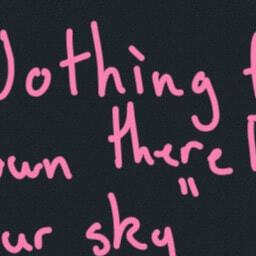 Nothing f
own there
ur sky"